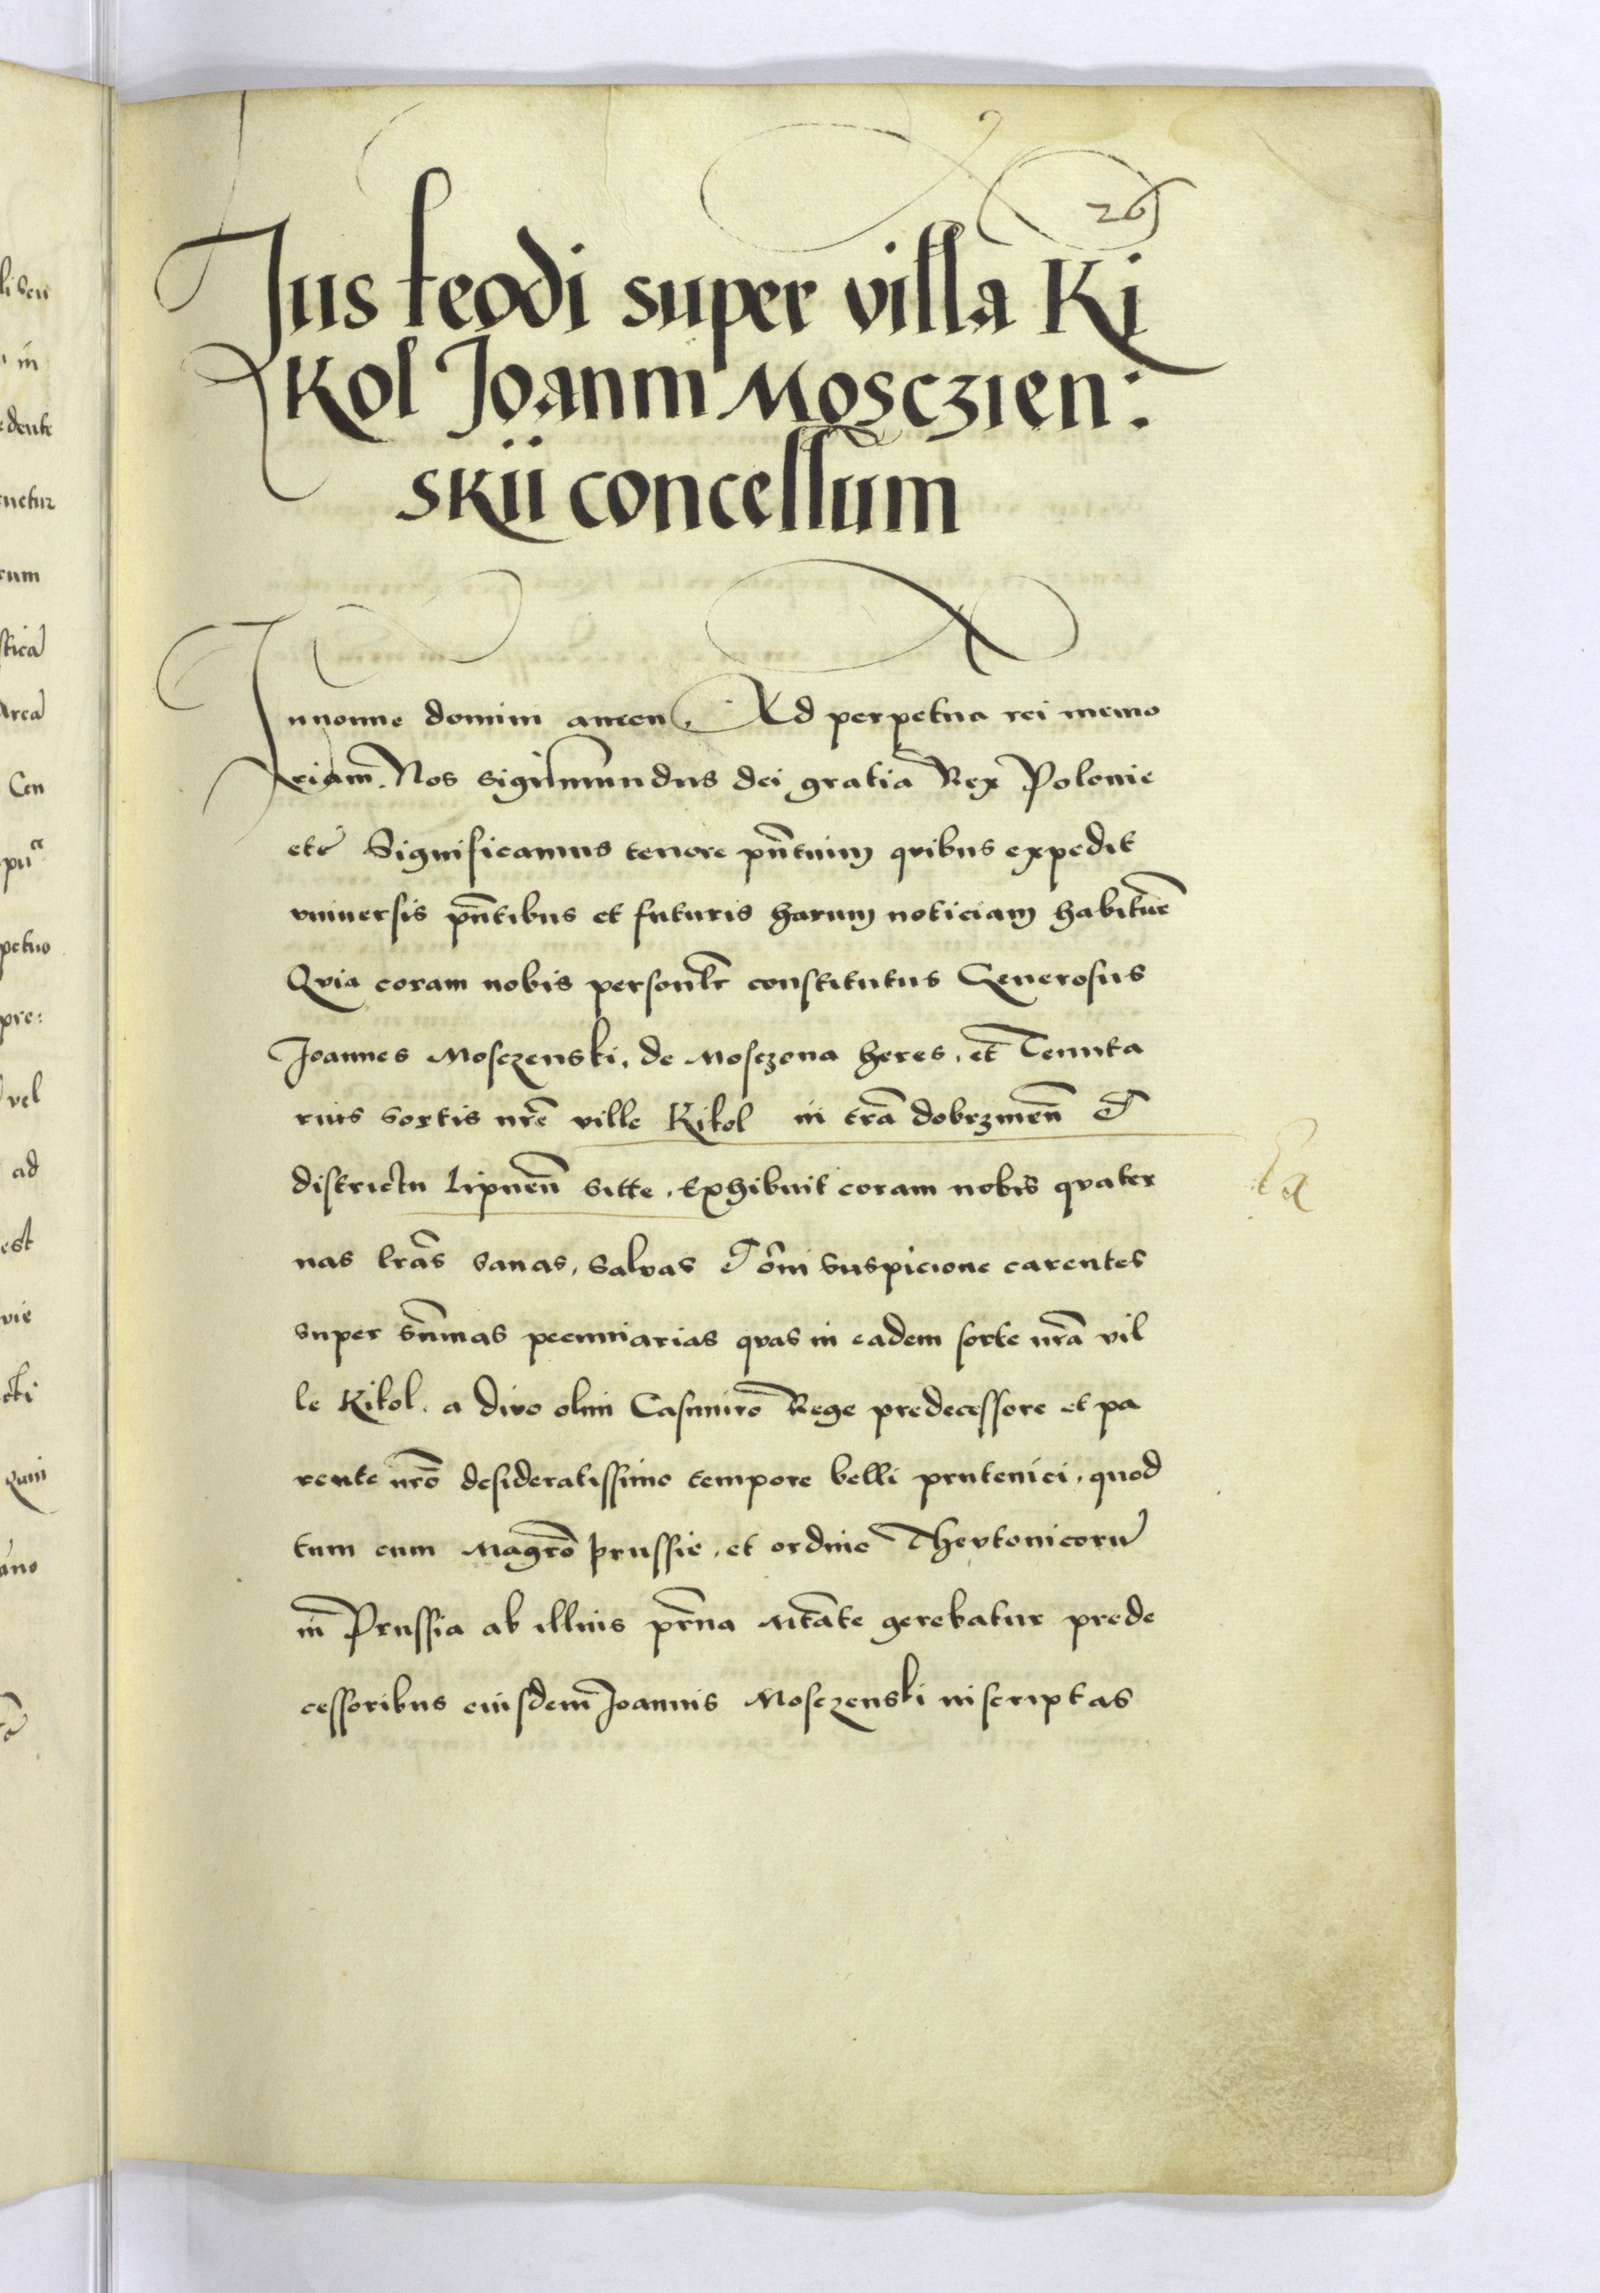 26
Jus feodi super villa Ki
kol Joanni Mosczien:
skii concessum
In nomine domini amen. Ad perpetua rei memo
riam. Nos Sigismundus dei gratia Rex Polonie
etc̄ Significamus tenore pn̄tium quibus expedit
vniuersis pn̄tibus et futuris harum noticiam habitur̄
Quia coram nobis personlr̄ constitutus Generosus
Joannes Mosczenski, de Mosczena heres, et Tenuta
rius sortis nr̄e ville Kikol in tr̄a dobrzinen̄ &
districtu Lipnen̄ sitte, Exhibuit coram nobis quater
nas lr̄as sanas, salvas & om̄i suspicione carentes
super sum̄as pecuniarias quas in eadem sorte nr̄a vil
le Kikol. a divo olim Casimiro Rege predecessore et pa
rente nr̄o desideratissimo tempore belli prutenici, quod
tum cum Magr̄o prussie, et ordine Theutonicorū
in Prussia ab illius pr̄na mtāte gerebatur prede
cessoribus eiusdem Joannis Mosczenski inscriptas
li seu
in
cedente
uetur
rum
stica
Area
Cen
petuo
pre:
vel
ad
est
vie
cti
Quin